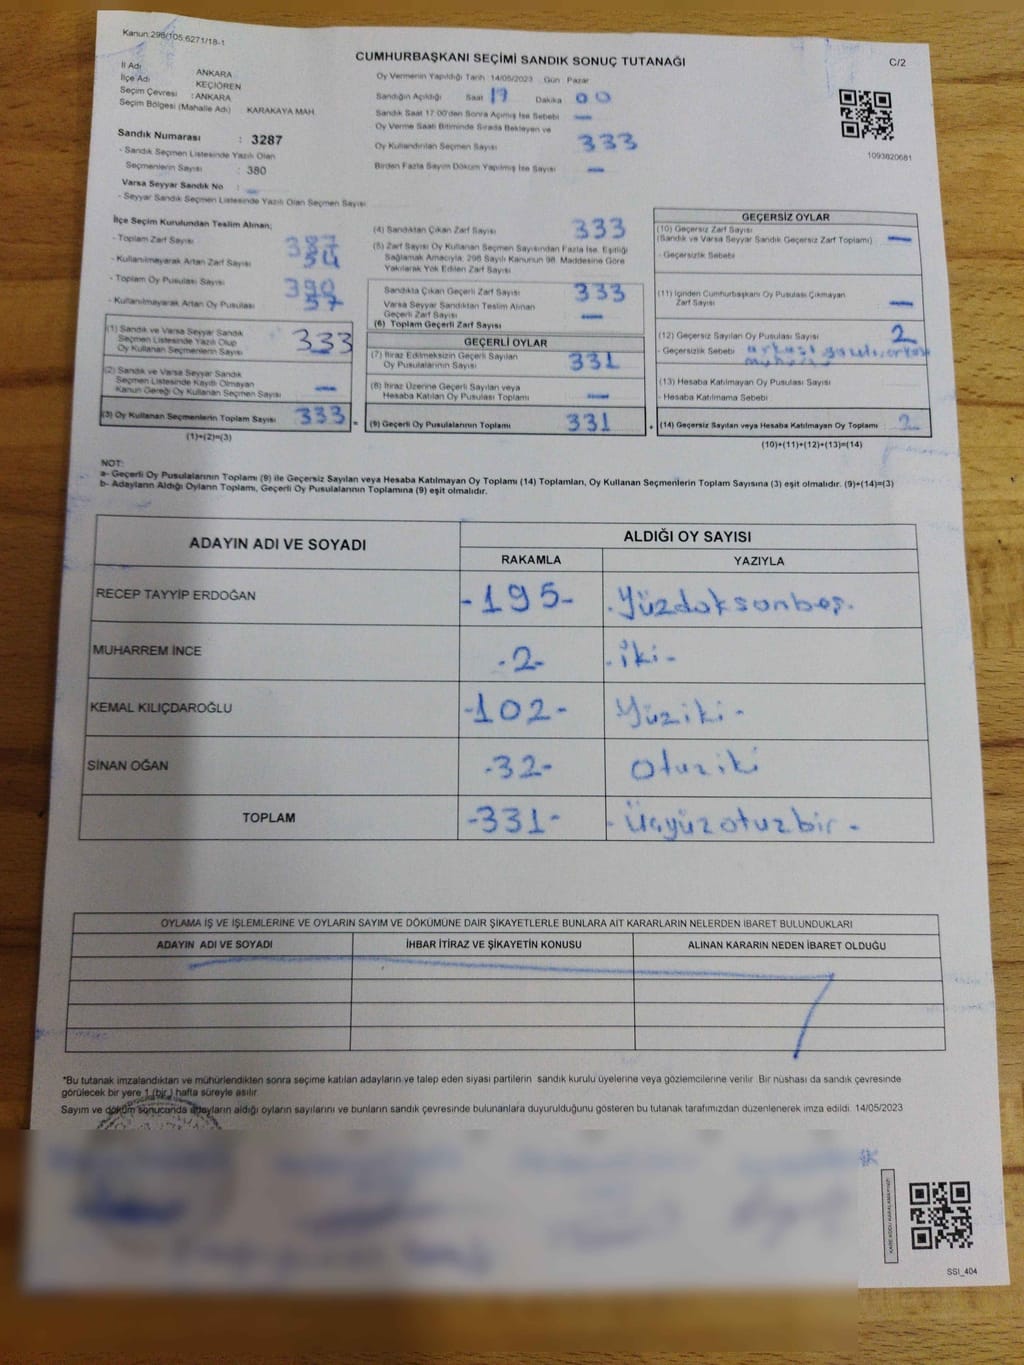 Kanun:298/105;6271/18-1
CUMHURBAŞKANI SEÇİMİ SANDIK SONUÇ TUTANAĞI
C/2
İl Adı ANKARA
İlçe Adı KEÇİÖREN
Seçim Çevresi : ANKARA
Seçim Bölgesi (Mahalle Adı) KARAKAYA MAH
Sandık Numarası : 3287
- Sandık Seçmen Listesinde Yazılı Olan
Seçmenlerin Sayısı : 380
Varsa Seyyar Sandık No : -
- Seyyar Sandık Seçmen Listesinde Yazılı Olan Seçmen Sayısı
Oy Vermenin Yapıldığı Tarih 14/05/2023 Gün Pazar
Sandığın Açıldığı Saat 17 Dakika 00
Sandık Saat 17:00'den Sonra Açımış İse Sebebi -
Oy Verme Saati Bitiminde Sırada Bekleyen ve
Oy Kullandırılan Seçmen Sayısı 333
Birden Fazla Sayım Döküm Yapılmış İse Sayısı -
1093820681
İlçe Seçim Kurulundan Teslim Alınan;
- Toplam Zarf Sayısı 387
- Kullanılmayarak Artan Zarf Sayısı 54
- Toplam Oy Pusulası Sayısı 390
- Kullanılmayarak Artan Oy Pusulası 57
(1) Sandık ve Varsa Seyyar Sandık
Seçmen Listesinde Yazılı Olup
Oy Kullanan Seçmenlerin Sayısı 333
(2) Sandık ve Varsa Seyyar Sandık
Seçmen Listesinde Kayıtlı Olmayan
Kanun Gereği Oy Kullanan Seçmen Sayısı -
(3) Oy Kullanan Seçmenlerin Toplam Sayısı 333
(1)+(2)=(3)
(4) Sandıktan Çıkan Zarf Sayısı 333
(5) Zarf Sayısı Oy Kullanan Seçmen Sayısından Fazla İse, Eşitliği
Sağlamak Amacıyla, 298 Sayılı Kanunun 98. Maddesine Göre
Yakılarak Yok Edilen Zarf Sayısı
Sandıkta Çıkan Geçerli Zarf Sayısı 333
Varsa Seyyar Sandıktan Teslim Alınan
Geçerli Zarf Sayısı -
(6) Toplam Geçerli Zarf Sayısı
GEÇERLİ OYLAR
(7) İtiraz Edilmeksizin Geçerli Sayılan
Oy Pusulalarının Sayısı 331
(8) İtiraz Üzerine Geçerli Sayılan veya
Hesaba Katılan Oy Pusulası Toplamı -
(9) Geçerli Oy Pusulalarının Toplamı 331
GEÇERSİZ OYLAR
(10) Geçersiz Zarf Sayısı
(Sandık ve Varsa Seyyar Sandık Geçersiz Zarf Toplamı) -
- Geçersizlik Sebebi
(11) İçinden Cumhurbaşkanı Oy Pusulası Çıkmayan
Zarf Sayısı -
(12) Geçersiz Sayılan Oy Pusulası Sayısı 2
- Geçersizlik Sebebi
(13) Hesaba Katılmayan Oy Pusulası Sayısı
- Hesaba Katılmama Sebebi
(14) Geçersiz Sayılan veya Hesaba Katılmayan Oy Toplamı 2
(10)+(11)+(12)+(13)=(14)
NOT:
a- Geçerli Oy Pusulalarının Toplamı (9) ile Geçersiz Sayılan veya Hesaba Katılmayan Oy Toplamı (14) Toplamları, Oy Kullanan Seçmenlerin Toplam Sayısına (3) eşit olmalıdır. (9)+(14)=(3)
b- Adayların Aldığı Oyların Toplamı, Geçerli Oy Pusulalarının Toplamına (9) eşit olmalıdır.
ADAYIN ADI VE SOYADI ALDIĞI OY SAYISI
RAKAMLA YAZIYLA
RECEP TAYYİP ERDOĞAN -195- -Yüzdoksanbeş.
MUHARREM İNCE -2- -iki-
KEMAL KILIÇDAROĞLU -102- Yüziki-
SİNAN OĞAN -32- Otuziki
TOPLAM -331- -Üçyüzotuzbir-
OYLAMA İŞ VE İŞLEMLERİNE VE OYLARIN SAYIM VE DÖKÜMÜNE DAİR ŞİKAYETLERLE BUNLARA AİT KARARLARIN NELERDEN İBARET BULUNDUKLARI
ADAYIN ADI VE SOYADI İHBAR İTİRAZ VE ŞİKAYETİN KONUSU ALINAN KARARIN NEDEN İBARET OLDUĞU
*Bu tutanak imzalandıktan ve mühürlendikten sonra seçime katılan adayların ve talep eden siyasi partilerin sandık kurulu üyelerine veya gözlemcilerine verilir. Bir nüshası da sandık çevresinde
görülecek bir yere 1 (bir) hafta süreyle asılır
Sayım ve döküm sonucunda adayların aldığı oyların sayılarını ve bunların sandık çevresinde bulunanlara duyurulduğunu gösteren bu tutanak tarafımızdan düzenlenerek imza edildi. 14/05/2023
SSI_404